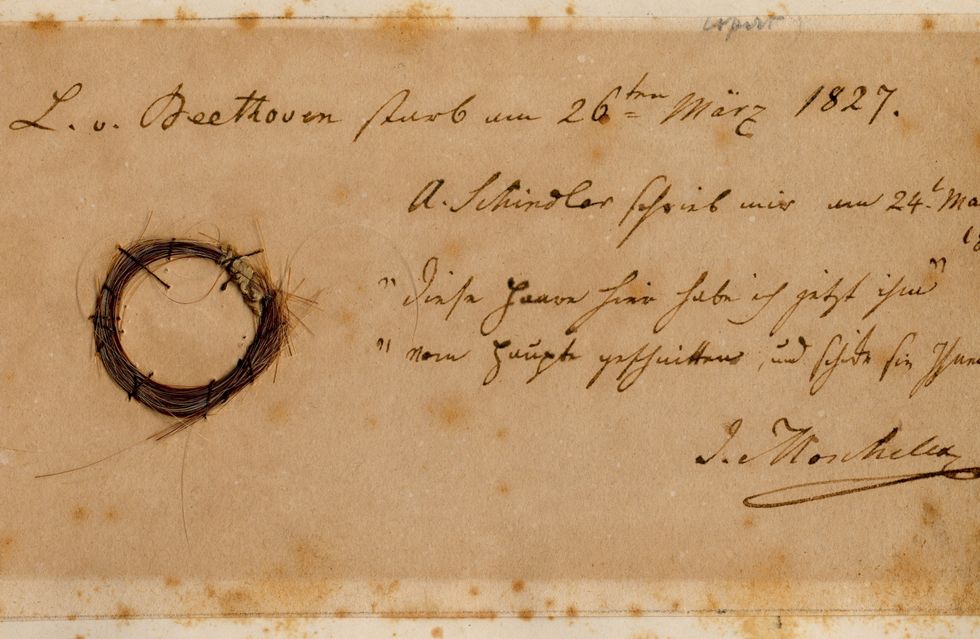 L. v. Beethoven starb am 26ten März 1827.
A. Schindler schrieb mir am 24t Ma
18
"Diese Haare hier habe ich jetzt ihm"
" vom Haupte geschnitten, und schicke sie Ihnen
I. Moscheles